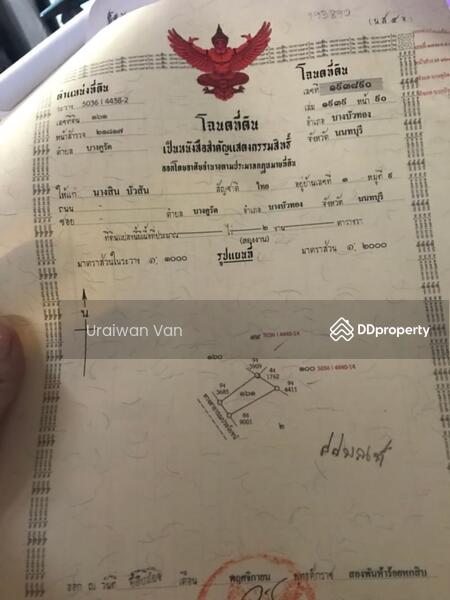 193890
(น.ส.๔ จ)
ตำแหน่งที่ดิน
ระวาง 5036 I 4438-2
เลขที่ดิน ๑๖๑
หน้าสำรวจ ๒๑๘๑๗
ตำบล บางคูรัด
โฉนดที่ดิน
เลขที่ ๑๙๓๘๙๐
เล่ม ๑๙๓๙ หน้า ๙๐
อำเภอ บางบัวทอง
จังหวัด นนทบุรี
โฉนดที่ดิน
เป็นหนังสือสำคัญแสดงกรรมสิทธิ์
ออกโดยอาศัยอำนาจตามประมวลกฎหมายที่ดิน
ให้แก่ นางสิน บัวสัน สัญชาติ ไทย อยู่บ้านเลขที่ ๑ หมู่ที่ ๙
ถนน - ตำบล บางคูรัด อำเภอ บางบัวทอง จังหวัด นนทบุรี
ซอย -
ที่ดินแปลงนี้มีเนื้อที่ประมาณ - ไร่ ๒ งาน - ตารางวา
(สองงาน)
มาตราส่วนในระวาง ๑:๑๐๐๐ รูปแผนที่ มาตราส่วน ๑:๒๐๐๐
น
Uraiwan Van
DDproperty
5036 I 4440-14
๑๖๐
๑๐๐ 5036 I 4440-14
94
5909
44
1762
94
3685
๑๖๑
94
4411
86
9001
ทางสาธารณประโยชน์
๒
ออก ณ วันที่ เดือน พฤศจิกายน พุทธศักราช สองพันห้าร้อยหกสิบ